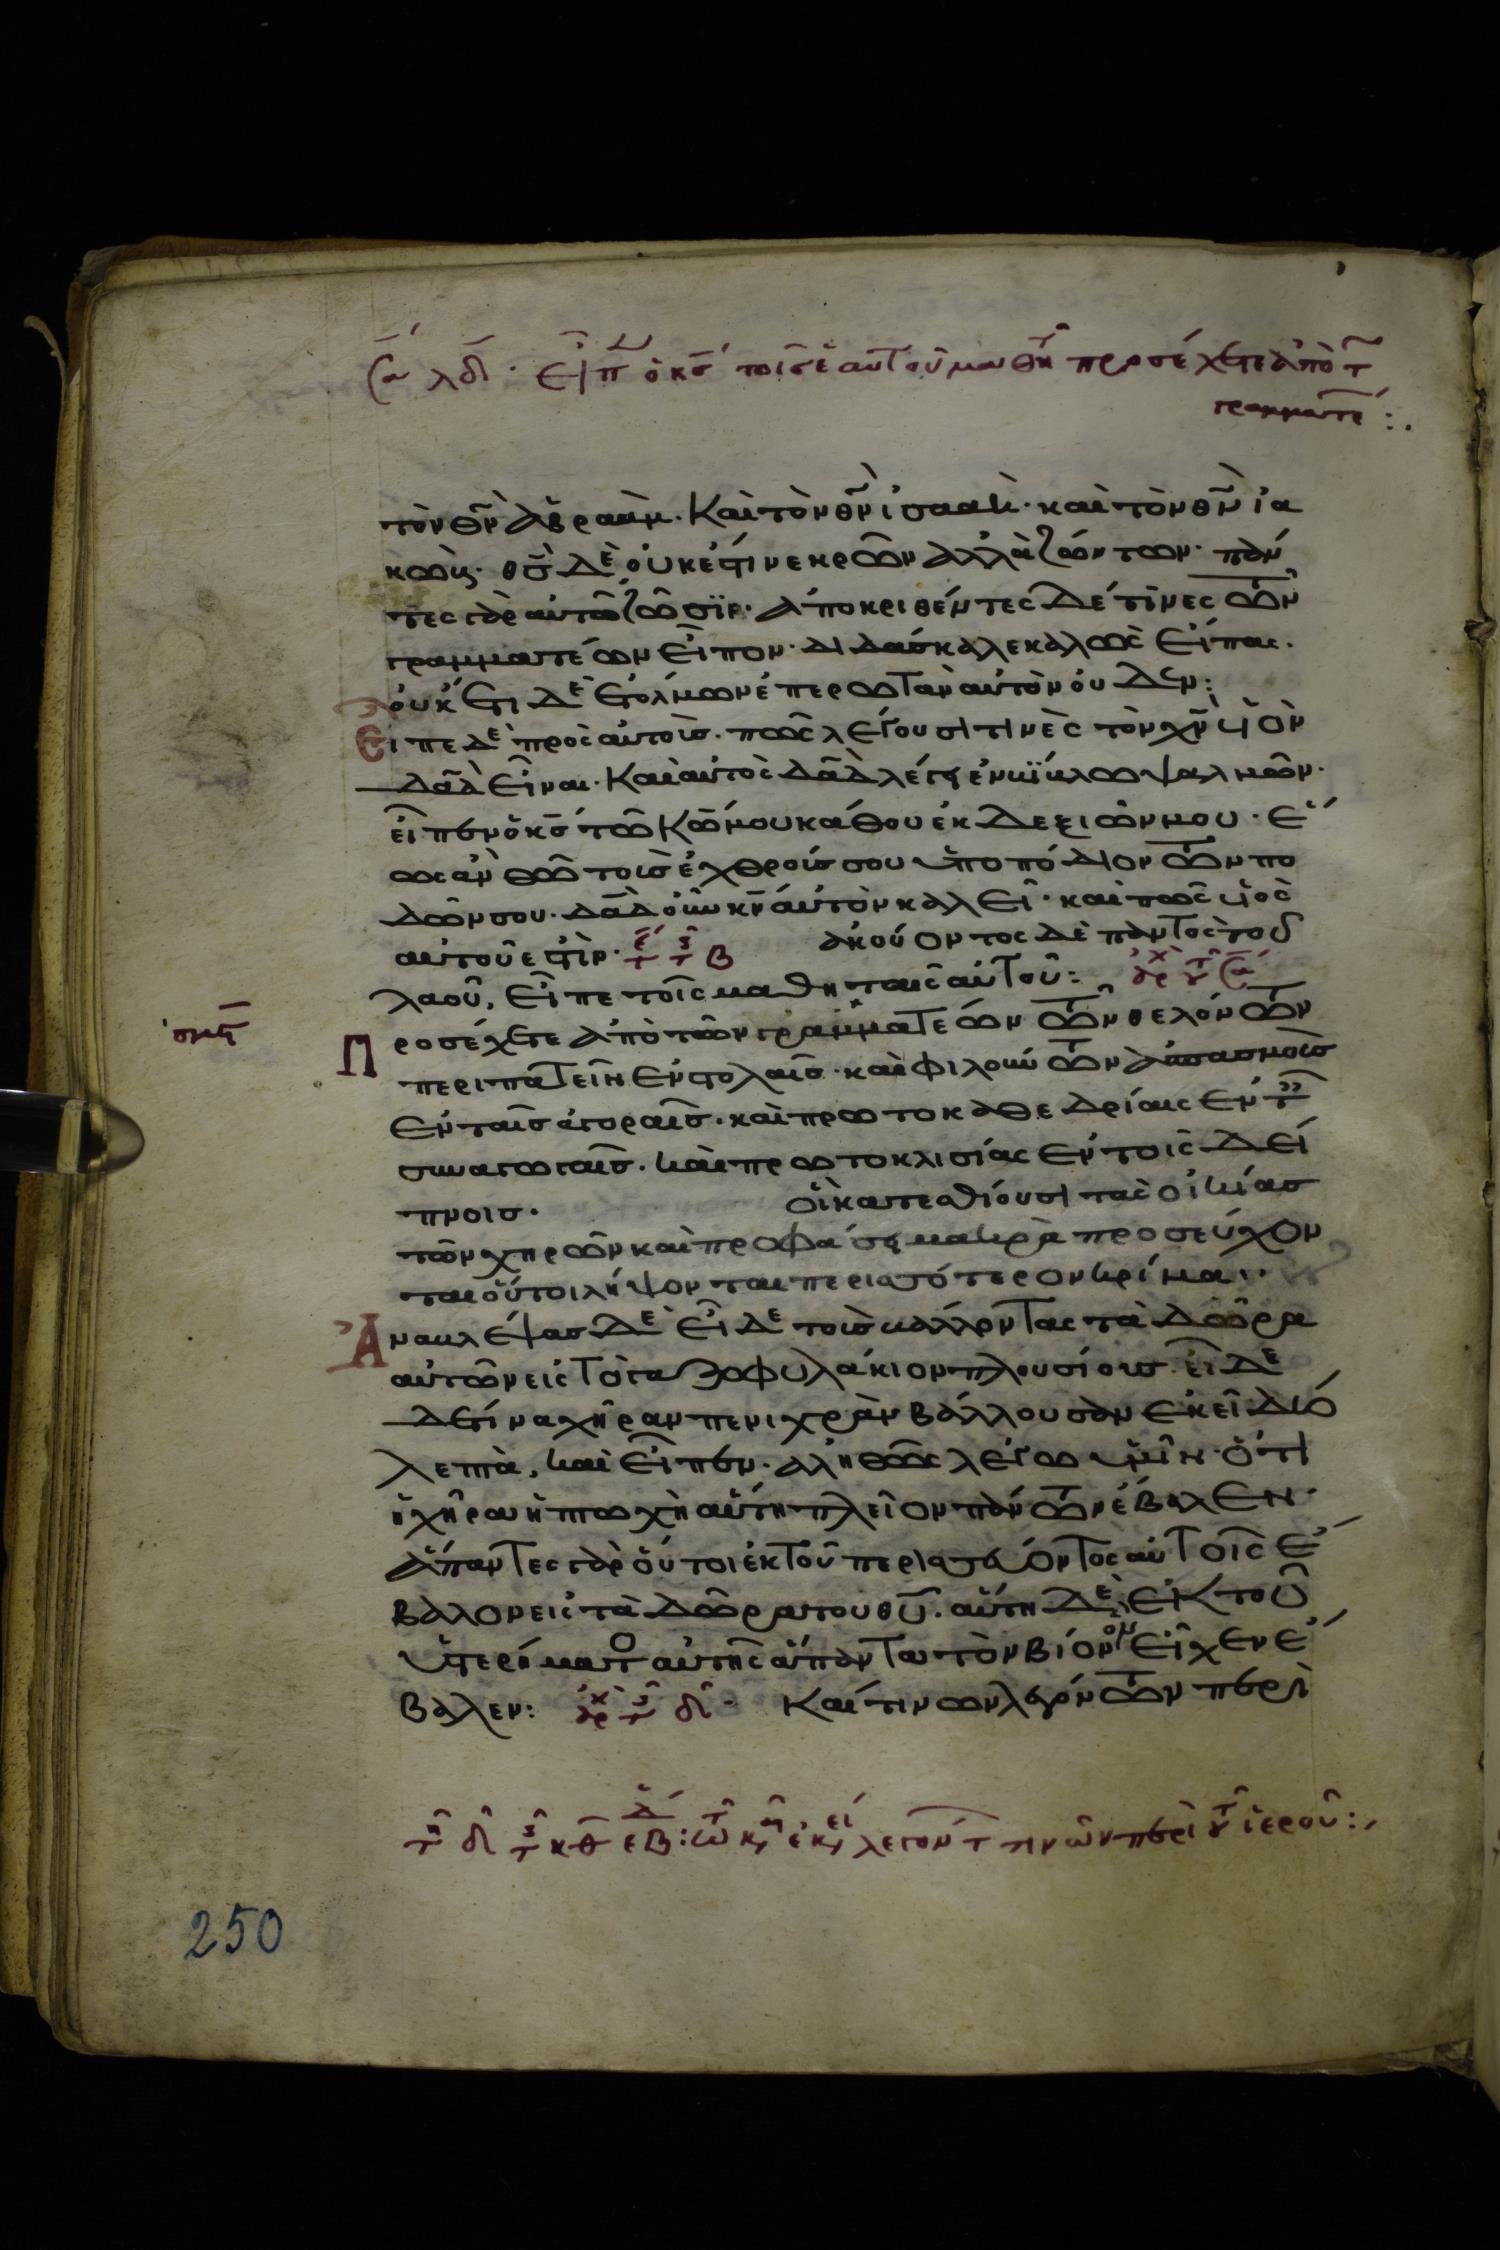 λδ· εἶπ ὁ κς τοῖς ἑαυτοῦ μαθη προσέχετε ἀπὸ τ
γραμματε :.
τὸν θν ἀβραὰμ. Καὶ τὸν θν ἰσαὰκ· καὶ τὸν θν ἰα
κώβ· θς δὲ οὐκ ἔστι νεκρῶν ἀλλὰ ζώντων· πάν
τες γὰρ αὐτῶ ζῶσϊν· ἀποκριθέντες δέ τινες τῶν
γραμματέων εἶπον· διδάσκαλε καλῶς εἶπας.
οὐκέτι δὲ ἐτόλμων ἐπερωτᾶν αὐτὸν οὐδέν:
Εἶπε δὲ πρὸς αὐτοὺς· πῶς λέγουσι τινὲς τὸν χν υἱὸν
δαδ εἶναι· Καὶ αὐτὸς δαδ λέγει ἐν βϊβλω ψαλμῶν·
εἶπεν ὁ κς τῶ κω μου κάθου ἐκ δεξιῶν μου· ἕ
ως ἂν θῶ τοὺς ἐχθρούς σου ὑποπόδιον τῶν πο
δῶν σου· δαδ οὖν κν αὐτὸν καλεῖ· καὶ πῶς υἱὸς
αὐτοῦ ἐστὶν· ἀκούοντος δὲ παντὸς τοῦ
λαοῦ, εἶπε τοῖς μαθηταῖς αὐτοῦ:
Προσέχετε ἀπὸ τῶν γραμματέων τῶν θελόντων
περιπατεῖν ἐν στολαῖς· καὶ φιλούντων ἀσπασμοὺς
ἐν ταῖς ἀγοραῖς· καὶ πρωτοκαθεδρίας ἐν τ
συναγωγαῖς· καὶ πρωτοκλισίας ἐν τοῖς δεί
πνοις· οἳ κατεσθίουσι τὰς οἰκίας
τῶν χηρῶν καὶ προφάσει μακρὰ προσεύχον
ται οὗτοι λήψονται περισσότερον κρίμα:
Ἀναβλέψας δὲ εἶδε τοὺς βάλλοντας τὰ δῶρα
αὐτῶν εἰς τὸ γαζοφυλάκιον πλουσίους· εἶδε
δέ τινα χήραν πενιχρὰν βάλλουσαν ἐκεῖ δύο
λεπτὰ, καὶ εἶπεν· ἀληθῶς λέγω ὑμῖν· ὅτι
ἡ χήρα ἡ πτωχὴ αὕτη πλεῖον πάντων ἔβαλεν·
ἅπαντες γὰρ οὗτοι ἐκ τοῦ περισσεύοντος αὐτοῖς ἔ
βαλον εἰς τὰ δῶρα του θυ. αὕτη δὲ ἐκ τοῦ
ὑστερήματος αὐτῆς ἅπαντα τὸν βίον ὃν εἶχεν ἔ
βαλεν: Καί τινων λεγόντων περὶ
κθ εβ: τῶ κ ἐκ λεγοντ τινῶν περὶ τ ἱεροῦ:
250